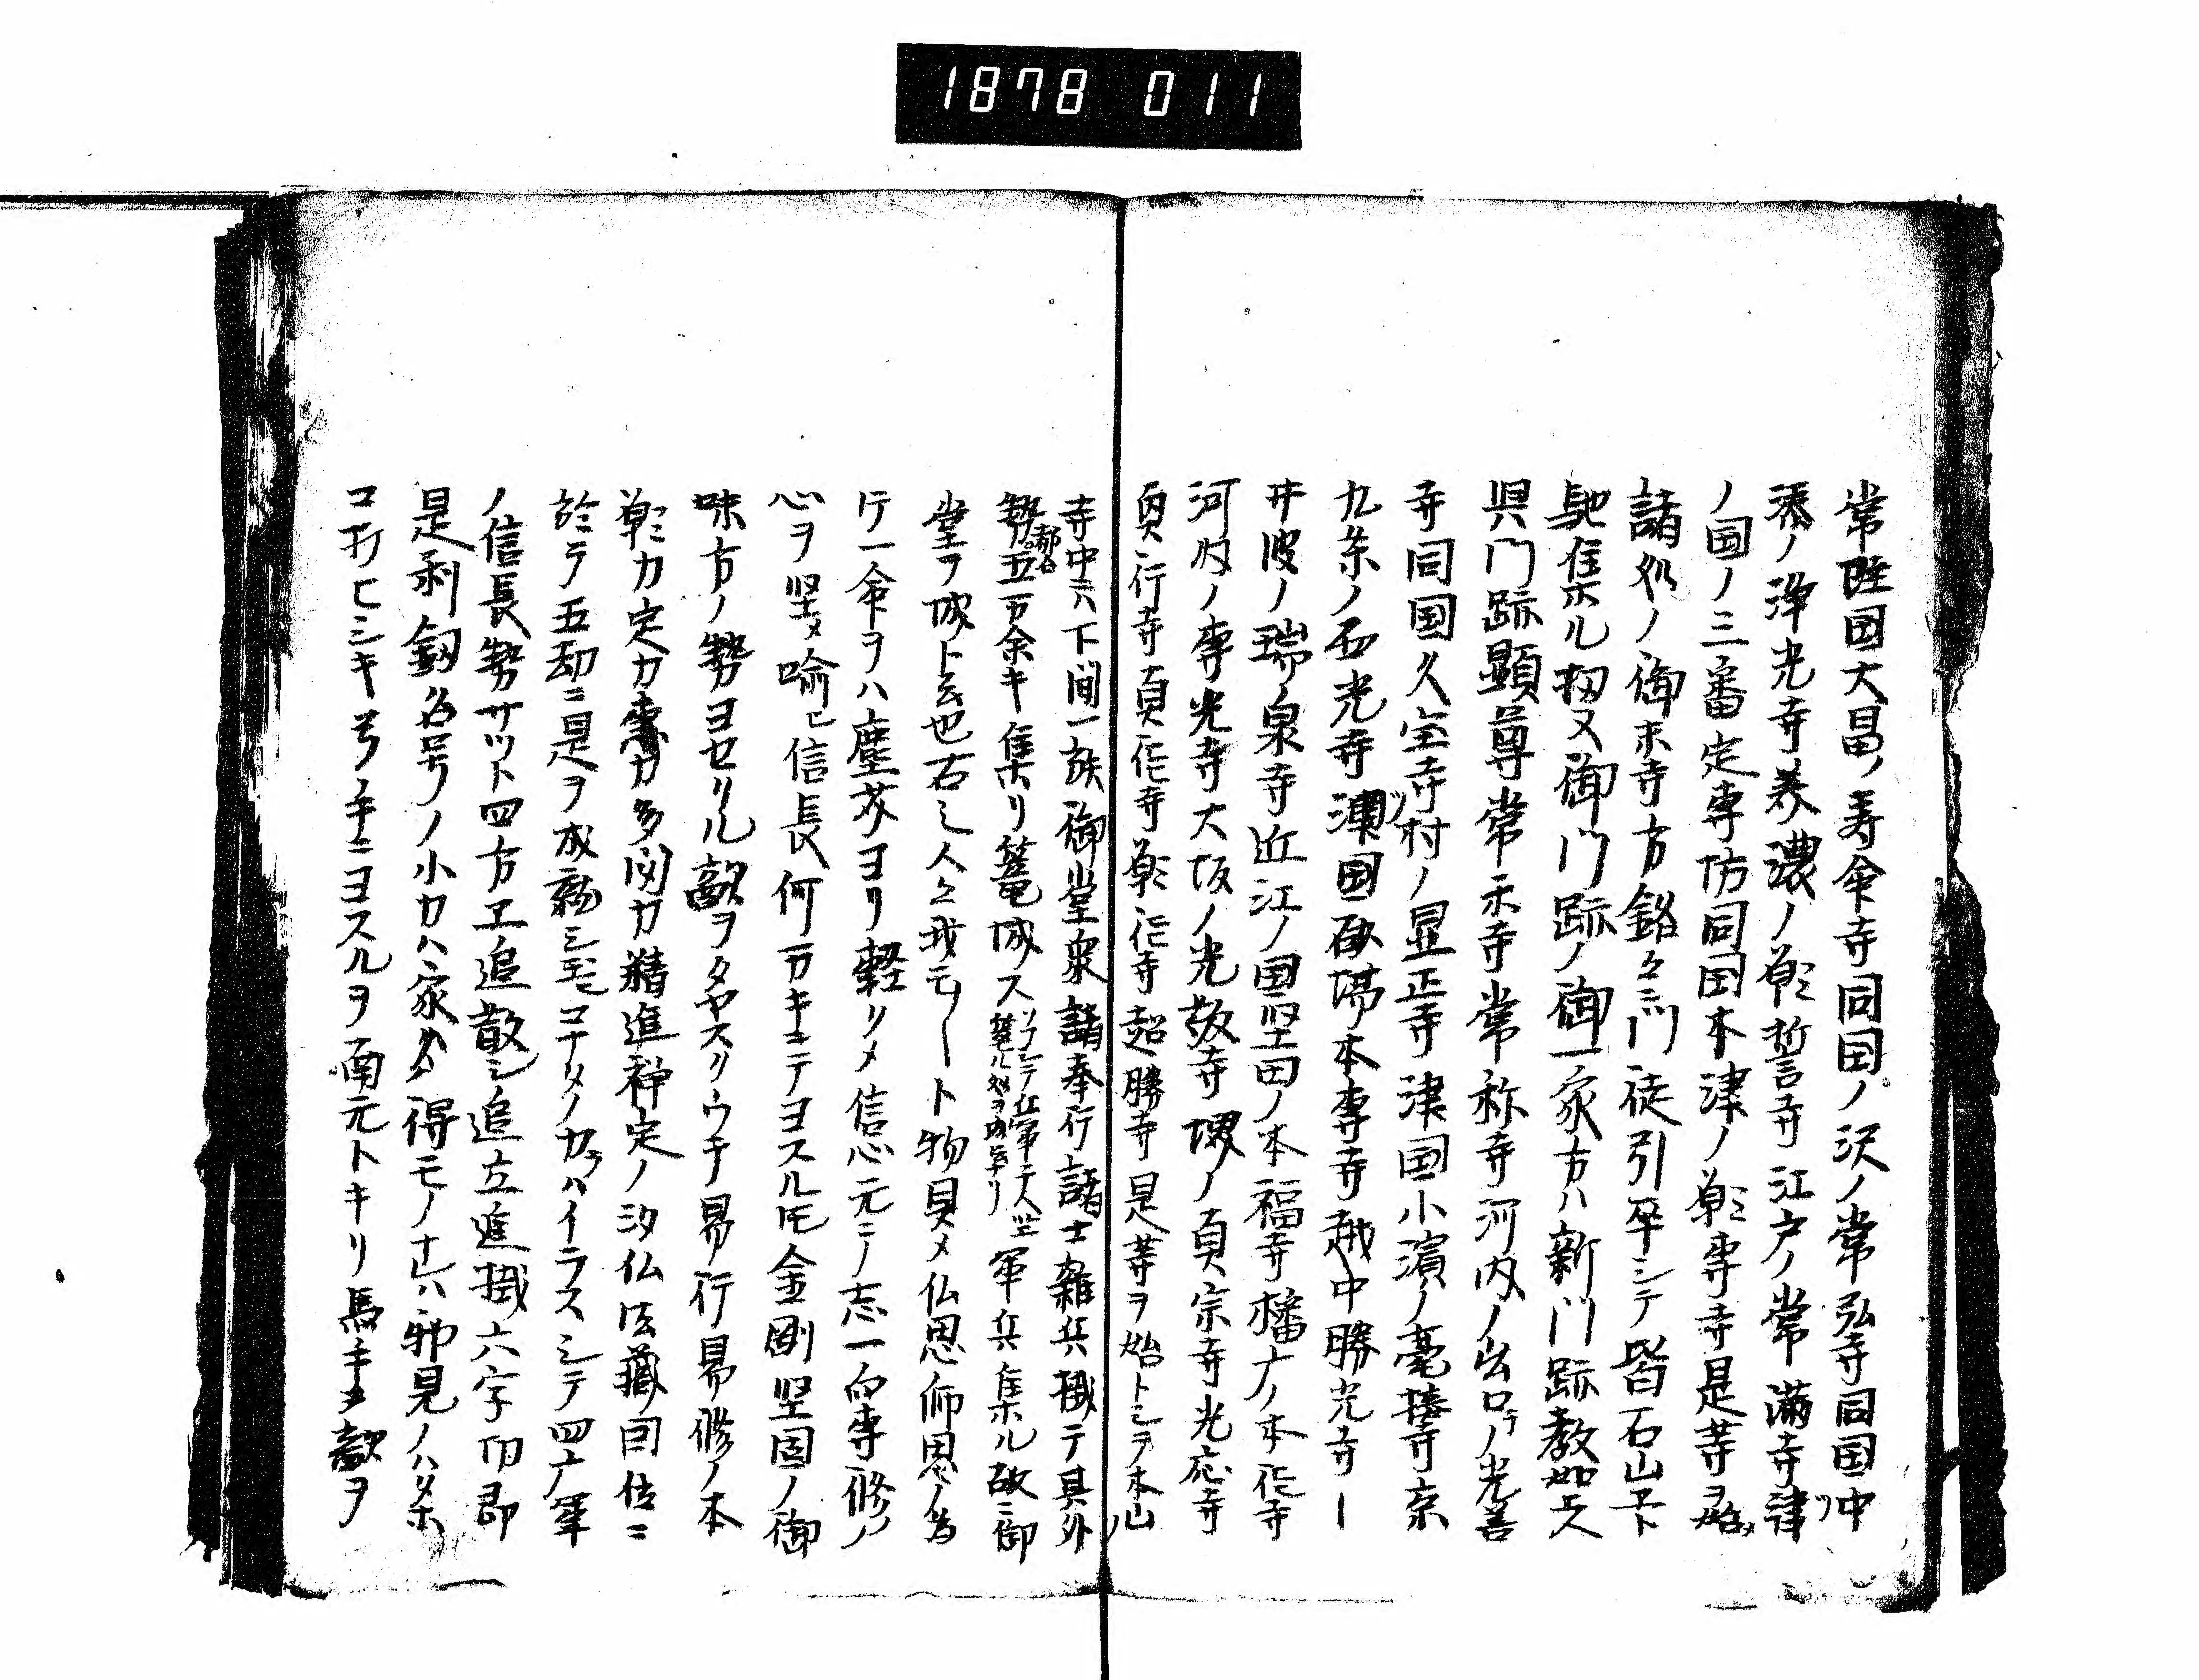 1878 011
常陸国大昌ノ寿命寺同国ノ沢ノ常弘寺同国中
湊ノ浄光寺美濃ノ願誓寺江戸ノ常満寺津
ノ国ノ三番定専坊同国本津ノ願専寺是等ヲ始メ
諸処ノ御末寺方銘々ニ門徒引卒シテ皆石山エト
馳集ル扨又御門跡ノ御一家方ハ新門跡教如上人
興門跡顕尊常楽寺常称寺河内ノ出口ノ光善
寺同国久宝寺村ノ显正寺津国小濱ノ毫摂寺京
九条ノ西光寺津国砂場本専寺越中勝光寺
井波ノ瑞泉寺近江ノ国堅田ノ本福寺橋本ノ本徳寺
河内ノ専光寺大坂ノ光教寺堺ノ真宗寺光応寺
真行寺真徳寺願徳寺超勝寺是等ヲ始トシテ本山
寺中ニハ下間一族御堂衆諸奉行諸士雑兵惣テ其外
勢都合五万余キ集リ篭城ス 軍兵集ル故ニ御
堂ヲ城ト云也右之人々我モ〳〵ト物具メ仏恩師恩ノ為
ニ一命ヲハ塵芥ヨリ軽リメ信心元ニノ志一向専修ノ
心ヲ堅メ喩ヒ信長何万キニテヨスル圧金剛堅固ノ御
味方ノ勢ヨセリル敵ヲタヤスクウチ易行易修ノ本
願力定力専力多聞力精進禅定ノ汐仏法蔵因位ニ
於テ五劫ニ是ヲ成就シ玉モコナタノカラハイラスシテ四十八軍
ノ信長勢サツト四方エ追散シ追立進撼六字即
是利釼名号ノ小カハ家々得モノナレハ邪見ノハタホ
コ打ヒシキ弓手ニヨスルヲ南元トキリ馬手ヲ敵ヲ